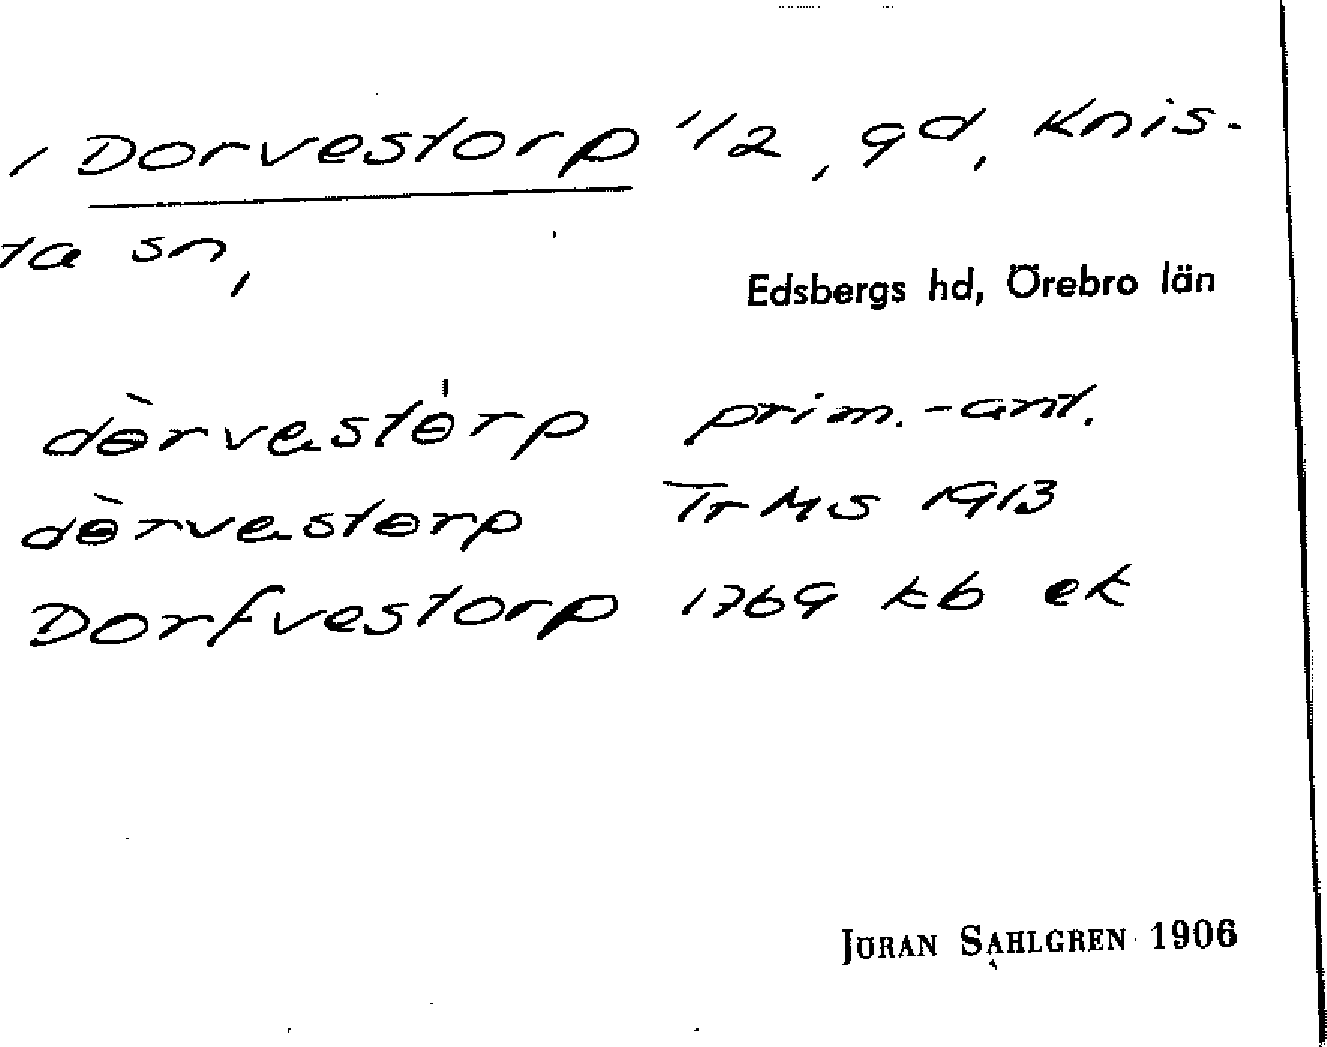 , Dorvestorp 1/2, gd, Knis-
ta sn,
Edsbergs hd, Örebro län
dɵ̀rvɵstɵ̍rp prim.-ant.
dɵ̀rvɵstɵrp TrMS 1913
Dorfvestorp 1769 kb ek
JÖRAN SAHLGREN 1906